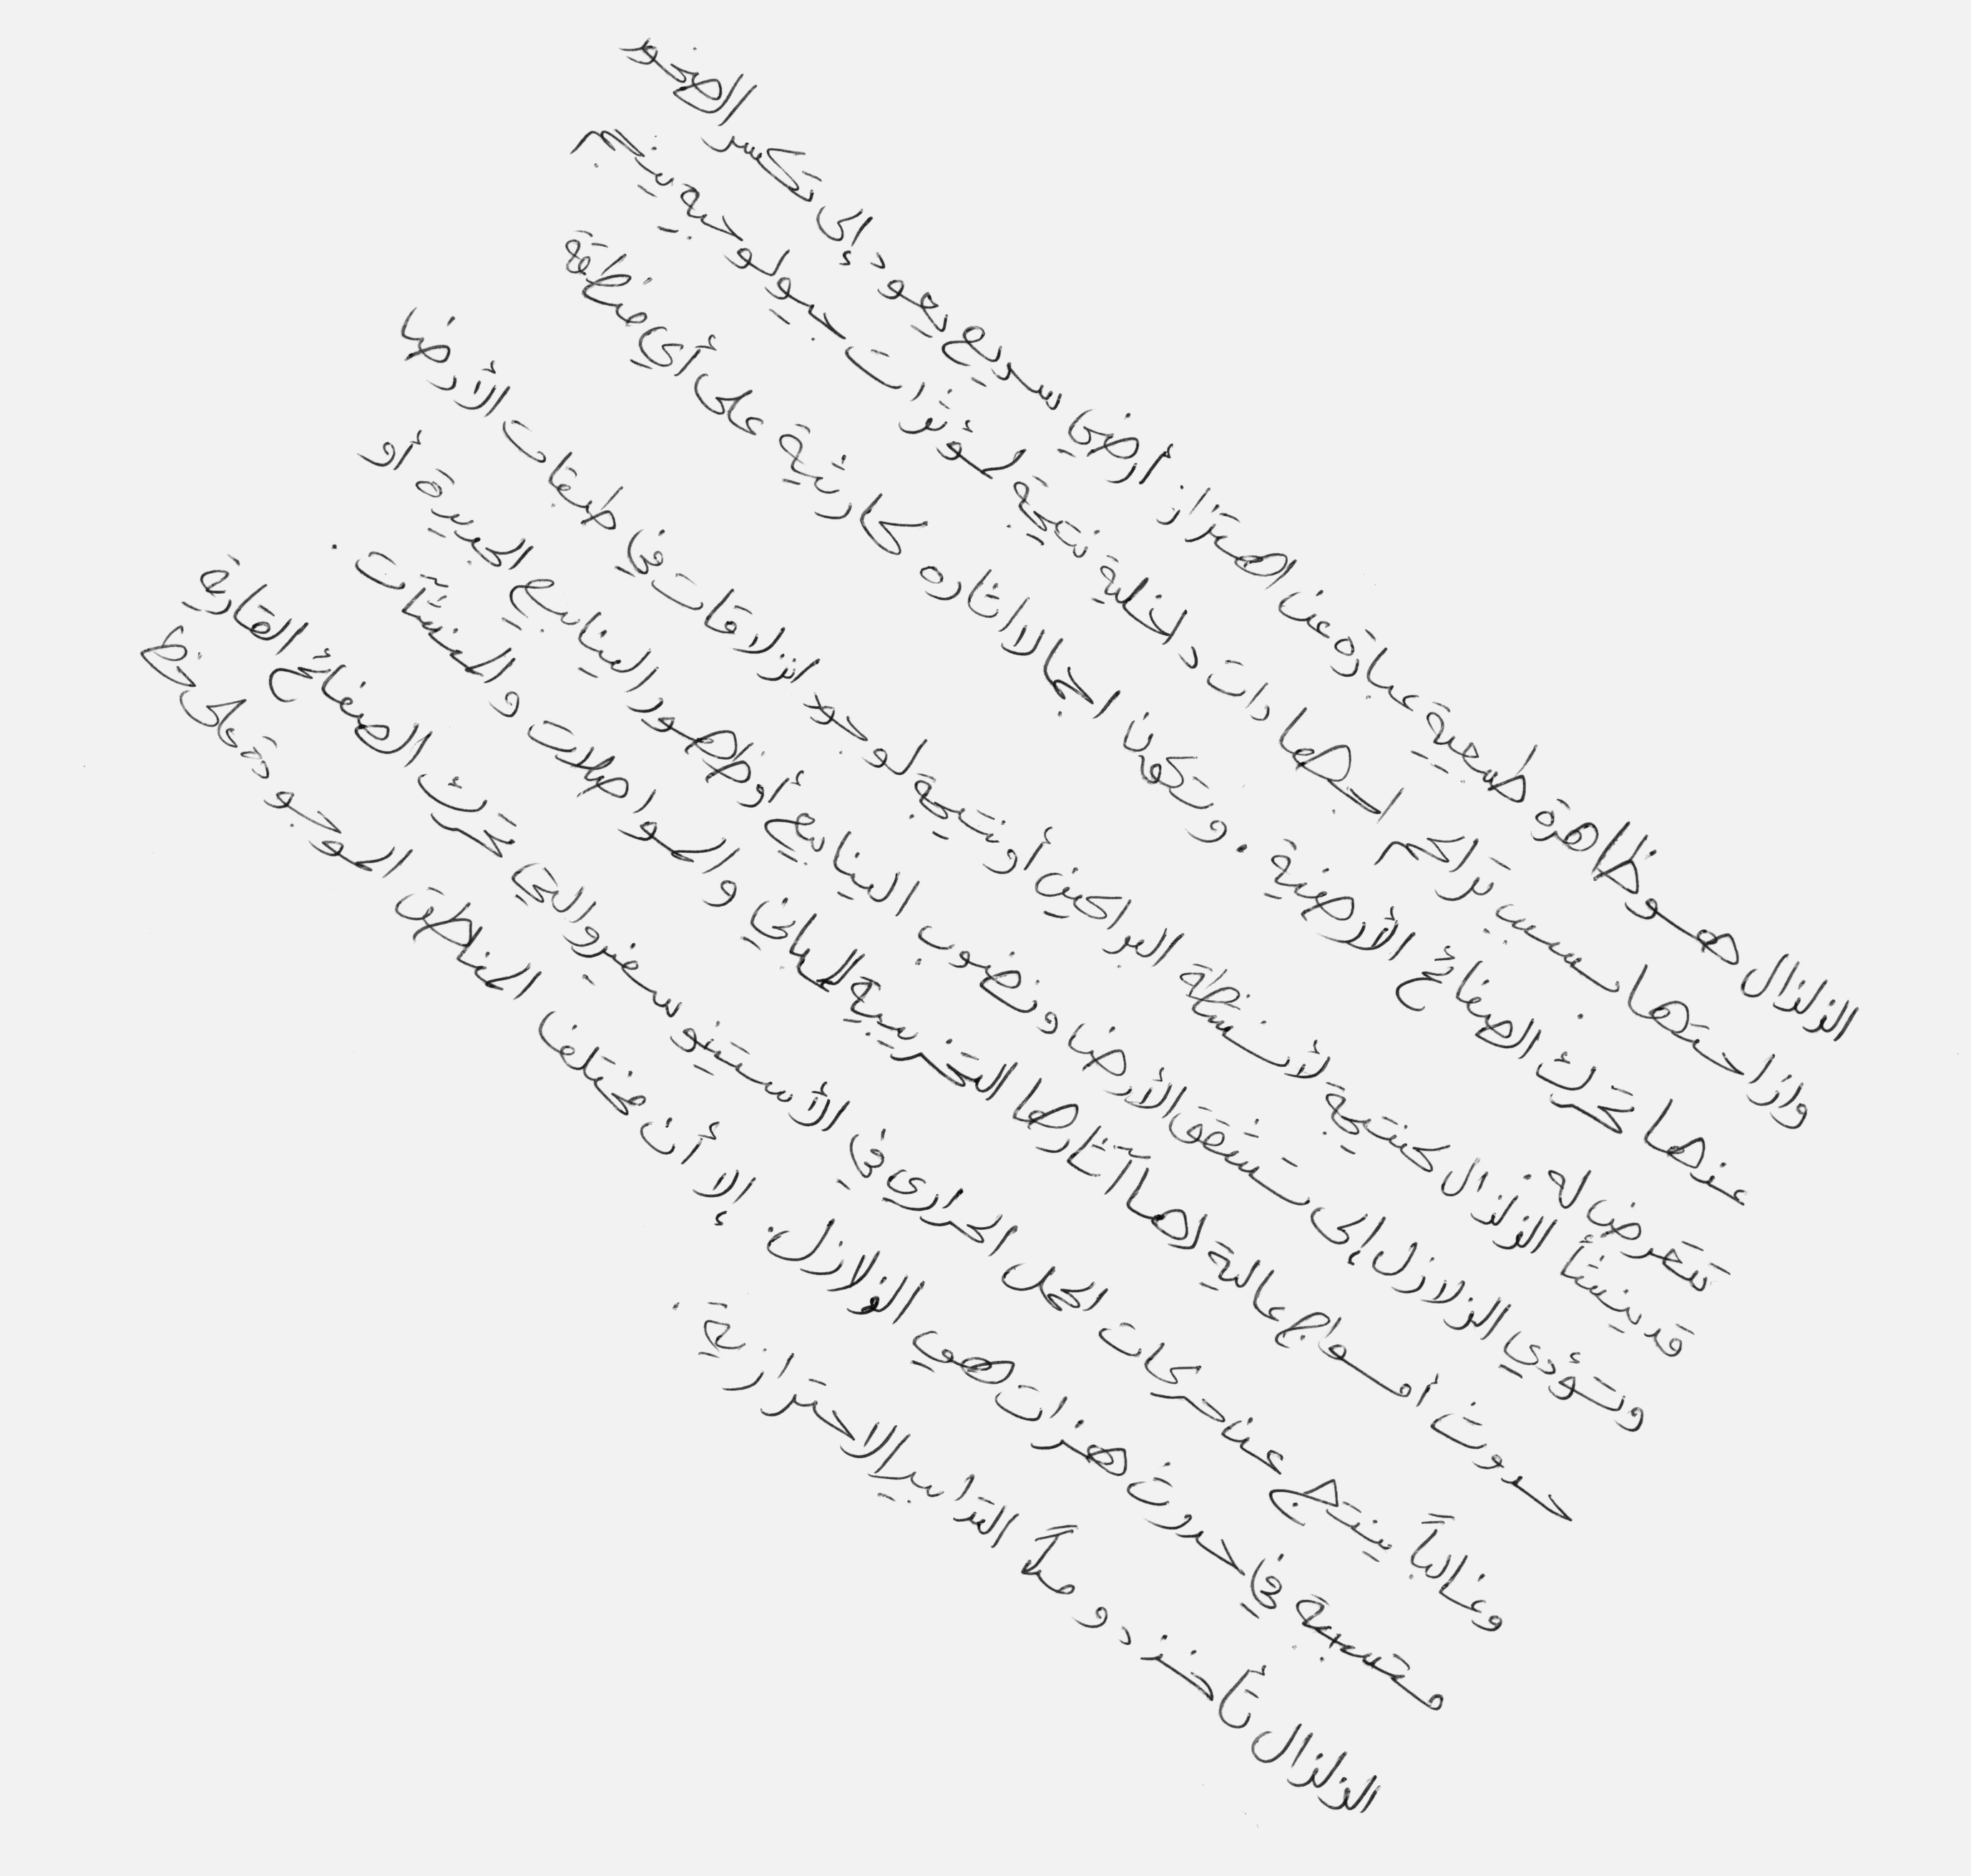 الزلزال هو ظاهرة طبيعية عبارة عن اهتزاز أرضي سريع يعود إلى تكسر الصخور
وازاحتها بسبب تراكم اجهادات داخلية نتيجة لمؤثرات جيولوجيه ينجم
عنها تحرك الصفائح الأرضية. وتكون اجمالا اثاره كارثية على أي منطقة
تتعرض له.
قد ينشأ الزلزال كنتيجة لأنشطة البراكين أو نتيجة لوجود انزلاقات في طبقات الأرض
وتؤدي الزلازل إلى تشقق الأرض ونضوب الينابيع أو ظهور الينابيع الجديدة أو
حدوث أمواج عالية لها آثارها التخريبية للمباني والمواصلات والمنشآت.
وغالباً ينتج عن حركات الحمل الحراري في الأستينوسفير والتي تحرك الصفائح القارية
متسببة في حدوث هزات هي الزلازل. إلا أن مختلف المناطق الموجودة على خط
الزلزال تأخذ دوماً التدابير الاحترازية.